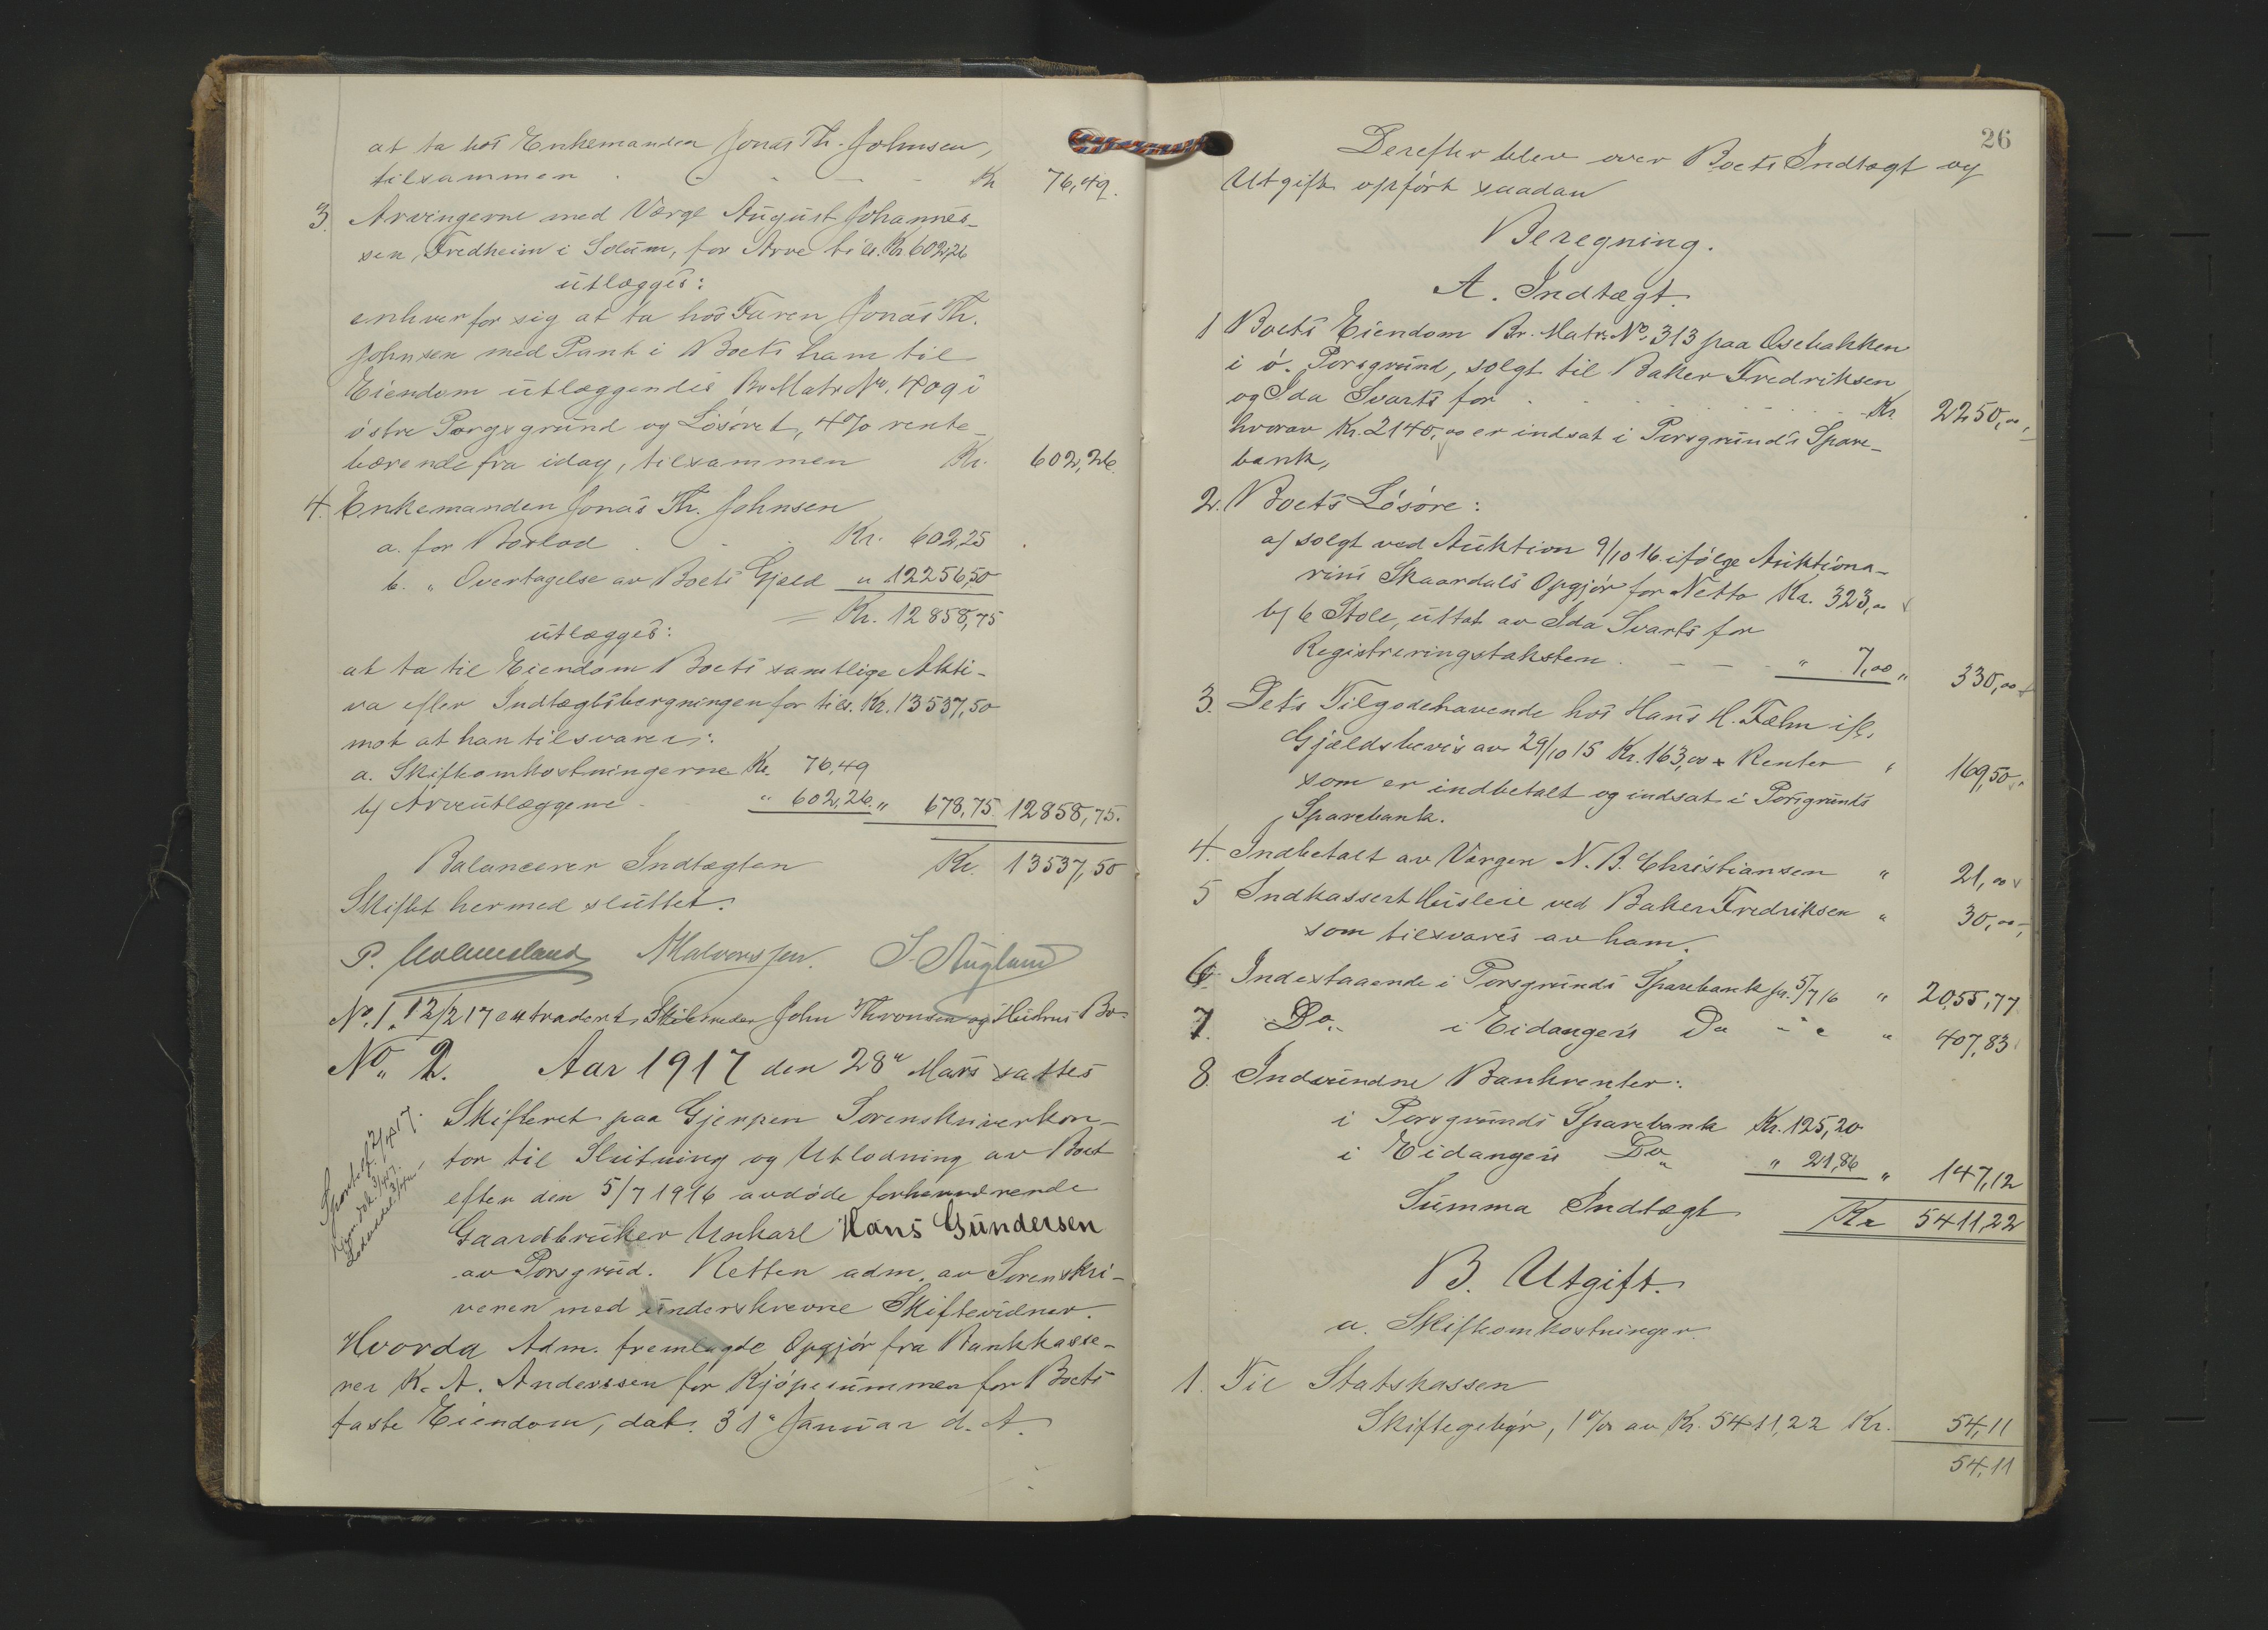 at ta hos Enkemanden Jonas Th. Johnsen,
tilsammen . - - - - Kr 76,49.
3. Arvingerne med Værge August Johannes-
sen, Fredheim i Solum, for Arve tils. Kr. 602,26
utlægges:
enhver for sig at ta hos Faren Jonas Th.
Johnsen med Pant i Boets ham til
Eiendom utlæggendes Br. Matr. No. 409 i
østre Porsgrund og Løsøret, 4% rente-
bærende fra idag, tilsammen Kr. 602,26.
4. Enkemanden Jonas Th. Johnsen
a. for Boslod . . . Kr. 602,25
b. " Overtagelse av Boets Gjæld " 12256,50
= Kr. 12858,75
utlægges:
at ta til Eiendom Boets samtlige Akti-
va efter Indtægtsbergningen for tils. Kr. 13537,50
mot at han tilsvarer:
a. Skifteomkostningerne Kr. 76,49
b) Arveutlæggene - " 602,26. " 678,75. 12858,75.
Balancerer Indtægten Kr. 13537,50
Skiftet hermed sluttet.
P. Holmesland Halvorssen. S. Augland
No. 1. 12/2 17 extradert Skibsreder John Thronsen og Hustrus Bo.
No. 2. Aar 1917 den 28de Mars sattes
Skifteret paa Gjerpen Sorenskriverkon-
tor til Slutning og Utlodning av Boet
efter den 5/7 1916 avdøde forhenværende
Gaardbruker Unkarl Hans Gundersen
av Porsgrud. Retten adm. av Sorenskri-
veren med underskrevne Skiftevidner.
Hvorda Adm. fremlagde Opgjør fra Bankkasse-
rer K. A. Anderssen for Kjøpesummen for Boets
faste Eiendom, dat. 31te Januar d. A.
26
Derefter blev over Boets Indtægt og
Utgift opført saadan
Beregning.
A. Indtægt.
1 Boets Eiendom Br. Matr. No. 313 paa Osebakken
i ø. Porsgrund, solgt til Baker Fredriksen
og Ida Svarts for . . . . . . Kr 2250,00
hvorav Kr. 2140,00 er indsat i Porsgrund's Spare-
bank,
2. Boets Løsøre:
a) solgt ved Auktion 9/10 16. ifølge Auktiona-
rius Skaardals Opgjør for Netto Kr. 323,00
b) 6 Stole, uttat av Ida Svarts for
Registreringstaksten . - - - " 7,00 " 330,00
3. Dets Tilgodehavende hos Hans H. Fælm ifl.
Gjældsbevis av 29/10 15 Kr. 163,00 + Renter " 169,50
som er indbetalt og indsat i Porsgrunds
Sparebank.
4. Indbetalt av Værgen N. B. Christiansen " 21,00
5 Indkassert Husleie ved Baker Fredriksen " 30,00
som tilsvares av ham.
6. Indestaaende i Porsgrunds Sparebank pr. 5/7 16 " 2055,77
7. Do. i Eidangers Do - " - " 407,83
8. Indvundne Bankrenter:
i Porsgrunds Sparebank Kr. 125,26
i Eidangers Do " 21,86 " 147,12
Summa Indtægt Kr 5411,22
B. Utgift.
a. Skifteomkostninger.
1. Til Statskassen
Skiftegebyr, 1% av Kr. 5411,22 Kr. 54,11
54,11